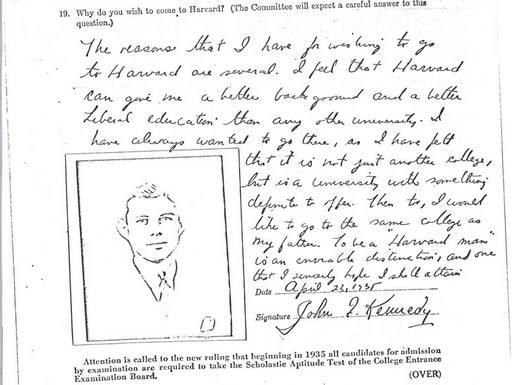 19. Why do you wish to come to Harvard? (The Committee will expect a careful answer to this
question.)
The reasons that I have for wishing to go
to Harvard are several. I feel that Harvard
can give me a better background and a better
liberal education than any other university. I
have always wanted to go there, as I have felt
that it is not just another college,
but is a university with something
definite to offer. Then too, I would
like to go to the same college as
my father. To be a "Harvard man"
is an enviable distinction, and one
that I sincerely hope I shall attain
Date April 23, 1935
Signature John F. Kennedy
Attention is called to the new ruling that beginning in 1935 all candidates for admission
by examination are required to take the Scholastic Aptitude Test of the College Entrance
Examination Board.
(OVER)